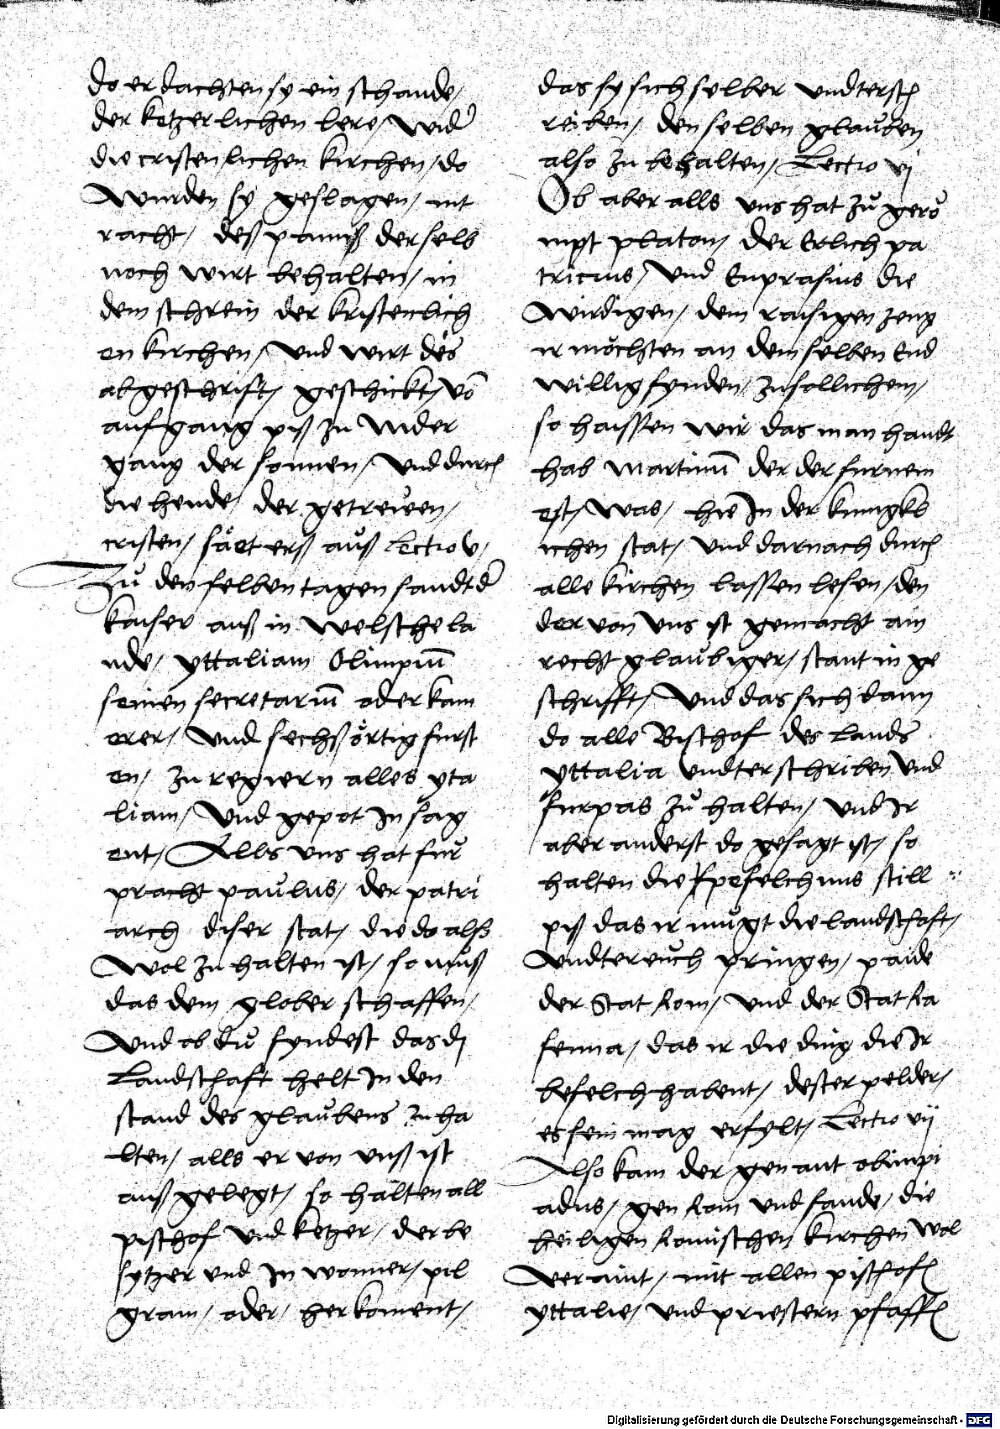 do er dachten sy ein schande/
der ketzerlichen lere/ wider
die cristenlichen kirchen/ do
wurden sy geslagen/ mit
racht/ deß pamß der selb
noch wirt behalten/ in
dem schrein der kristenlich
en kirchen/ Vnd wirt des
abgeschrifft/ geschickt/ võ
aufgang piß zu Nider
gang der sonnen/ Vnd durch
die hende/ der getreẅen/
cristen/ säet erß auß Lectio v/
Zu den selben tagen sandt d
kaiser auß in welsche la
nde/ yttaliam Olimpiũ
seinen secretariũ oder kam
erer/ Vnd sechßörtig furst
en/ zu regiern alles yta
liam/ Vnd gepot In sag
ent/ Alls vns hat für
pracht paulus/ der patri
arch diser stat/ die do alß
wol zu halten ist/ so muß
das dem glober schaffen/
Vnd ob du fyndest das di
Landschaft helt In den
stand des glaubens zu ha
lten/ alls er von vnß ist
auß gelegt/ so halten all
pischof Vnd ketzer/ der be
sytzer vnd In womer/ pil
gram/ oder/ herkoment/
das sy sich selber vndtersch
reiben/ den selben glauben
also zu behalten/ Lectio vj
Ob aber alls vns hat zu gerö
mpt platon/ der Erlich pa
tricius/ Vnd Euprasius die
wirdigen/ dem raisigen zeug
ir möchten an dem selben End
willig fynden/ zu sollichem/
so haissen wir das man handt
hab Martinũ der der furnem
est/ was/ hie In der kungkl
ichen stat/ Vnd darnach durch
alle kirchen lassen lesen/ den
der von vns ist gemacht ain
recht glaubiger/ stant in ge
schrifft/ Vnd das sich dann
do alle Bischof des Lands
yttalia vndterschriben Vnd
furpas zu halten/ vnd Ir
aber anderst do gesagt ist/ so
halten die pefelch uns still
piß das ir mugt die landschaft/
Vndter euch pringen/ paide
der Stat Rom/ Vnd der Stat Ra
fenna/ das ir die ding die Ir
befelch habent/ dester pelder/
es sein mag erfylt/ Lectio vij
Also kam der genant olimpi
adus/ gen Rom vnd fande/ die
heiligen Romischen kirchen wol
veraint/ mit allen pischoffen
yttalie/ vnd priestern pfaffen
Digitalisierung gefördert durch die Deutsche Forschungsgemeinschaft - DFG